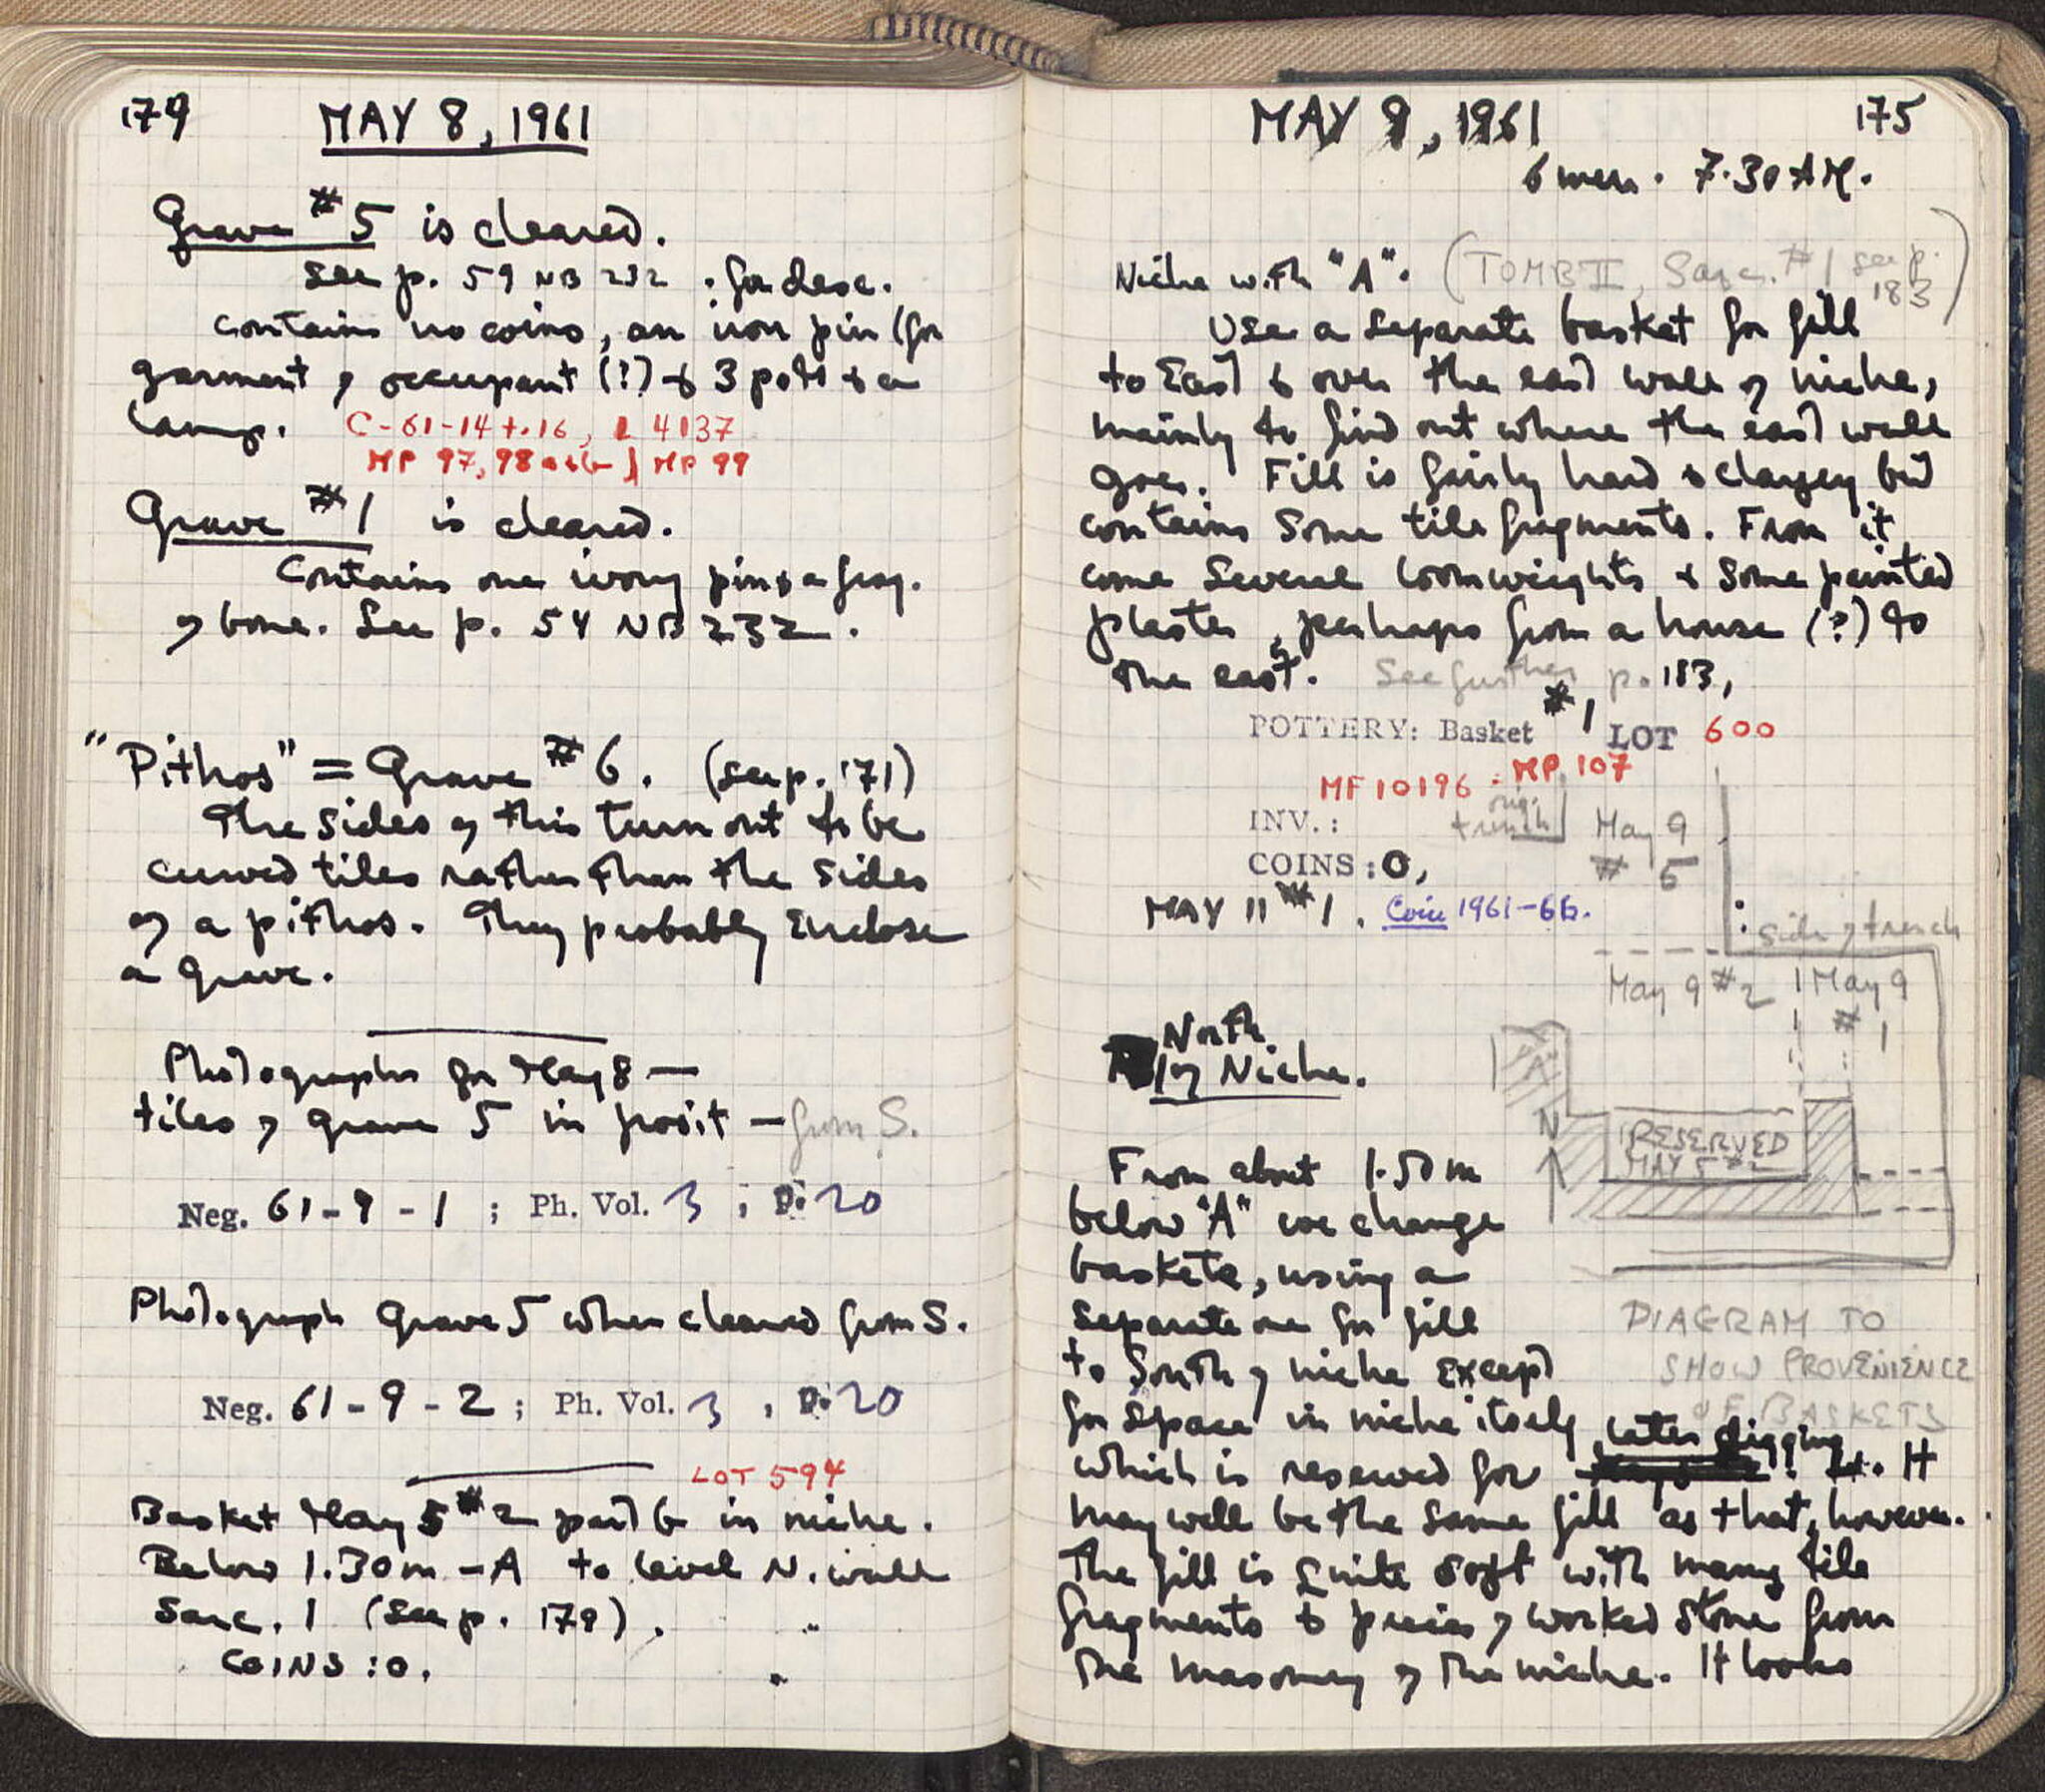 174
MAY 8, 1961
Grave #5 is cleared.
See p. 59 NB 232 : for desc.
contains no coins, an iron pin (for
garment of occupant (?) & 3 pots & a
lamp. C-61-14 t. 16, L 4137
MP 97, 98 a & b MP 99
Grave #1 is cleared.
Contains one ivory pin & a frag.
of bone. See p. 54 NB 232.
"Pithos" = Grave #6. (see p. 171)
The sides of this turn out to be
curved tiles rather than the sides
of a pithos. They probably enclose
a grave.
Photographs for May 8 —
tiles of grave 5 in posit — from S.
Neg. 61-9-1 ; Ph. Vol. 3 ; p. 20
Photograph Grave 5 when cleared from S.
Neg. 61-9-2 ; Ph. Vol. 3 , p. 20
LOT 594
Basket May 5 #2 part b in niche.
Below 1.30m - A to level N. wall
Sarc. 1 (see p. 179).
COINS : 0.
MAY 9, 1961
175
6 men. 7.30 AM.
Niche with "A". (TOMB II, Sarc. #1 see p.
183)
Use a separate basket for fill
to East & over the east wall of niche,
mainly to find out where the east wall
goes. Fill is fairly hard & clayey but
contains some tile fragments. From it
come several loomweights & some painted
plaster, perhaps from a house (?) to
the east. See further p. 183,
POTTERY: Basket #1 LOT 600
MF 10196 . MP 107
INV.: orig.
trench May 9
COINS : 0, # 5
MAY 11 #1. Coin 1961-66.
side of trench
May 9 #2 May 9
# 1
North
of Niche.
"A"
N
RESERVED
MAY 5 #2
From about 1.50 m
below "A" we change
baskets, using a
separate one for fill
to South of niche except
DIAGRAM TO
SHOW PROVENIENCE
OF BASKETS
for space in niche itself
which is reserved for later digging. It
may well be the same fill as that, however.
The fill is quite soft with many tile
fragments & pieces of worked stone from
the masonry of the niche. It looks